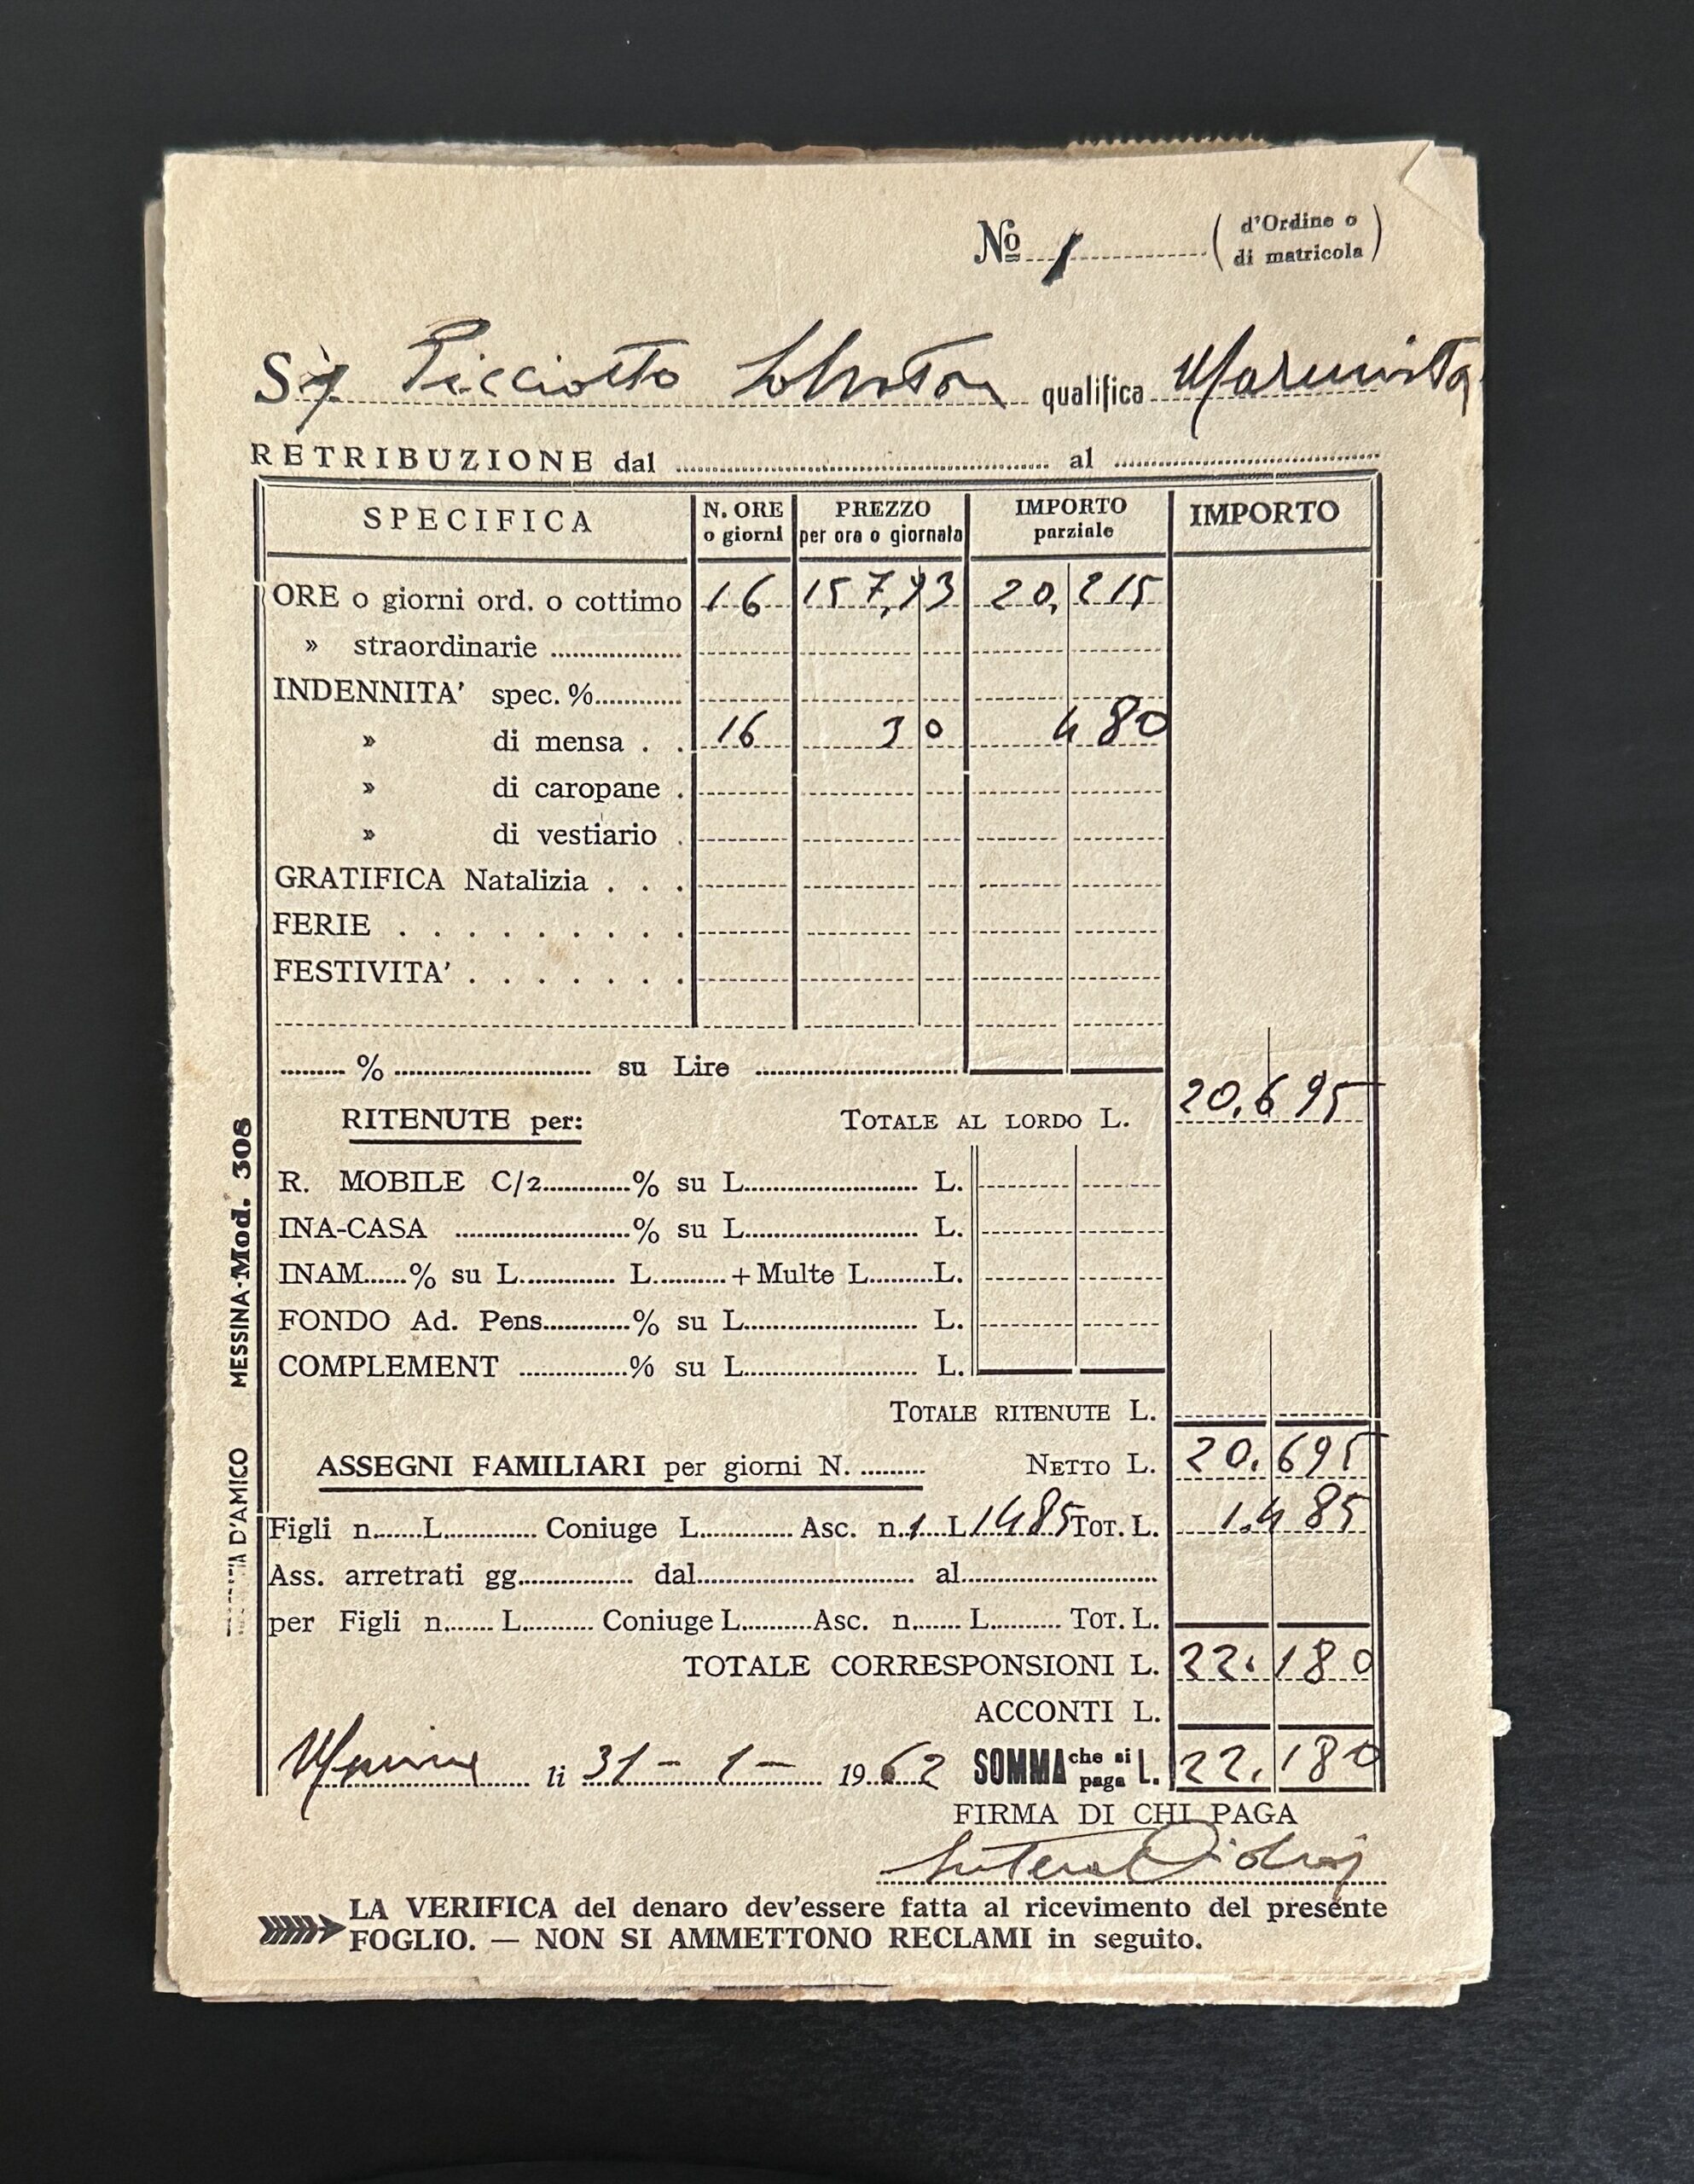 No 1 ( d'Ordine o di matricola )
Sig Picciotto Salvatore qualifica Marmista
RETRIBUZIONE dal al
SPECIFICA N. ORE o giorni PREZZO per ora o giornata IMPORTO parziale IMPORTO
ORE o giorni ord. o cottimo 16 157,93 20,215
» straordinarie
INDENNITA' spec. %
» di mensa 16 30 480
» di caropane
» di vestiario
GRATIFICA Natalizia
FERIE
FESTIVITA'
% su Lire
RITENUTE per: TOTALE AL LORDO L. 20.695
R. MOBILE C/2 % su L. L.
INA-CASA % su L. L.
INAM % su L. L. + Multe L. L.
FONDO Ad. Pens. % su L. L.
COMPLEMENT % su L. L.
TOTALE RITENUTE L.
ASSEGNI FAMILIARI per giorni N. NETTO L. 20.695
Figli n. L. Coniuge L. Asc. n. 1 L. 1485 TOT. L. 1.485
Ass. arretrati gg. dal al
per Figli n. L. Coniuge L. Asc. n. L. TOT. L.
TOTALE CORRESPONSIONI L. 22.180
ACCONTI L.
Messina li 31 - 1 - 1962 SOMMA che si paga L. 22.180
FIRMA DI CHI PAGA
LA VERIFICA del denaro dev'essere fatta al ricevimento del presente
FOGLIO. — NON SI AMMETTONO RECLAMI in seguito.
D'AMICO MESSINA-Mod. 308